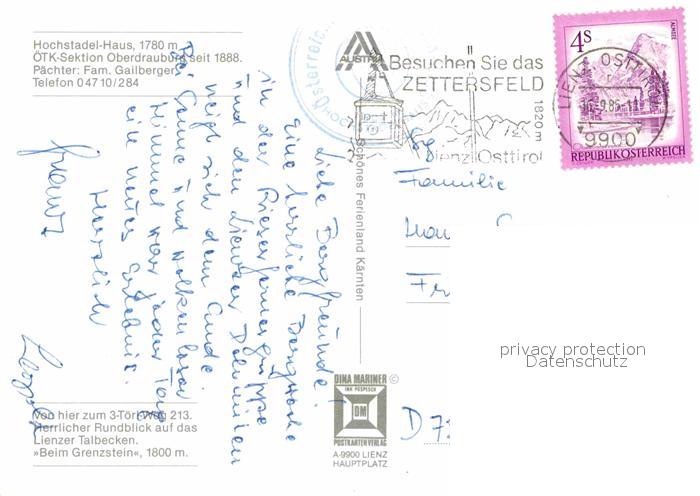 Hochstadel-Haus, 1780 m
ÖTK-Sektion Oberdrauburg seit 1888.
Pächter: Fam. Gailberger
Telefon 0 47 10 / 284
AUSTRIA
Besuchen Sie das
ZETTERSFELD
1820 m
Lienz Osttirol
LIENZ, OSTTIROL
9900
4 S
ALMSEE
REPUBLIK ÖSTERREICH
Liebe Bergfreunde!
Eine herrliche Bergwoche
in der Rieserfernergruppe
und den Lienzer Dolomiten
neigt sich dem Ende.
Bei Sonne und wolkenlosem
Himmel war jeder Tag
ein neues Erlebnis.
Herzlich
Franz
Leopold
Familie
D 7
Schönes Ferienland Kärnten
DINA MARINER ©
DM
POSTKARTENVERLAG
A-9900 LIENZ
HAUPTPLATZ
Von hier zum 3-Törl-Weg 213.
Herrlicher Rundblick auf das
Lienzer Talbecken.
»Beim Grenzstein«, 1800 m.
privacy protection
Datenschutz